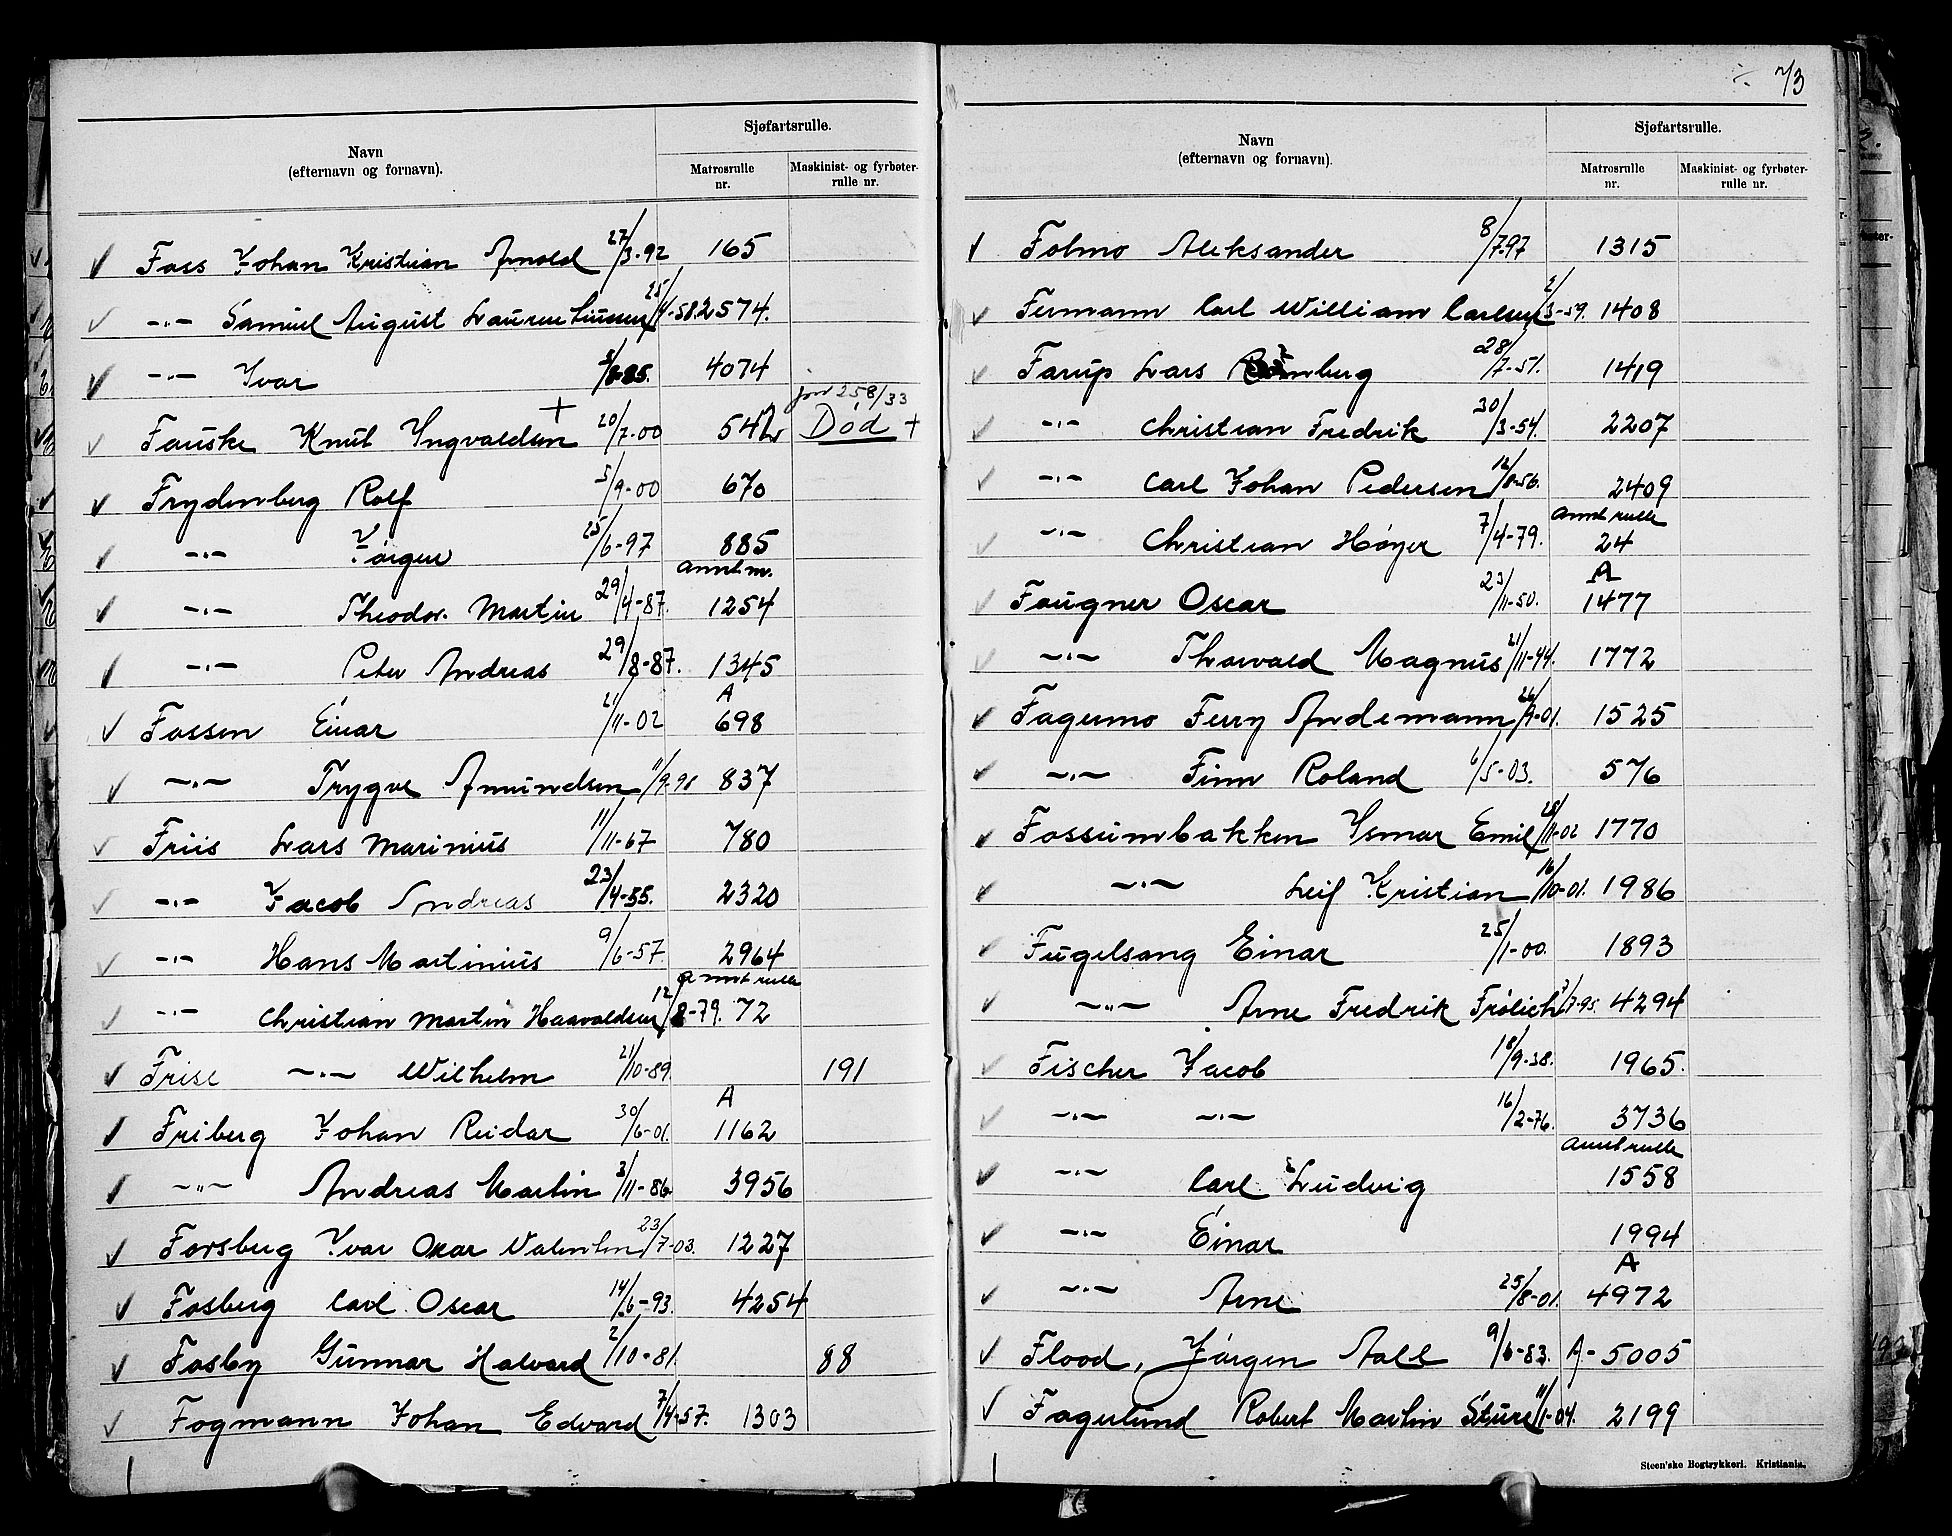 Navn
(efternavn og fornavn).
Sjøfartsrulle.
Matrosrulle
nr.
Maskinist- og fyrbøter-
rulle nr.
Foss Johan Kristian Arnold 27/3-92 165
—"— Samuel August Laurentiussen 25/4-58 2574.
—"— Ivar /8-85. 4074
jnr 258/33
Fauske Knut Ingvaldsen + 20/7-00 542 Død +
Frydenberg Rolf 5/9-00 670
—"— Jørgen 25/6-97 885
—"— Theodor Martin 29/4-87. Annet nr. 1254
—"— Peter Andreas 29/8-87. 1345
Fossen Einar 21/11-02 A 698
—"— Trygve Amundsen 11/9-98 837
Friis Lars Marinius 11/11-67 780
—"— Jacob Andreas 23/4-55. 2320
—"— Hans Martinius 9/6-57. 2964
—"— Christian Martin Haavaldsen 12/8-79. Annet rulle 72
Frise —"— Wilhelm 21/10-89. 191
Friberg Johan Reidar 30/6-01. A 1162
—"— Andreas Martin 3/11-86 3956
Forsberg Ivar Oscar Valentin 23/7-03. 1227
Fosberg Carl Oscar 14/6-93. 4254
Fosby Gunnar Halvard 2/10-81. 88
Fogmann Johan Edvard 7/4-57. 1303
73
Navn
(efternavn og fornavn).
Sjøfartsrulle.
Matrosrulle
nr.
Maskinist- og fyrbøter-
rulle nr.
Folmo Aleksander 8/7-97 1315
Fermann Carl William Carlsen 2/3-59. 1408
Farup Lars 28/7-51. 1419
—"— Christian Fredrik 30/3-54. 2207
—"— Carl Johan Pedersen 12/8-56. 2409
—"— Christian Høyer 7/4-79. Annet rulle 24
Faugner Oscar 23/11-50. A 1477
—"— Thorvald Magnus 21/11-44. 1772
Fagermo Ferry Andemann 26/9-01. 1525
—"— Finn Roland 6/5-03. 576
Fossumbakken Ismar Emil 28/11-02 1770
—"— Leif Kristian 16/10-01. 1986
Fugelsang Einar 25/1-00. 1893
—"— Arne Fredrik Frølich 3/7-95. 4294
Fischer Jacob 18/9-38. 1965.
—"— —"— 16/2-76. 3736
—"— Carl Ludvig Annet rulle 1558
—"— Einar 1994
—"— Arne 25/8-01. A 4972
Flood, Jørgen Aall 9/6-83. A- 5005
Fagerlund Robert Martin Sture 11/1-04. 2199
Steen'ske Bogtrykkeri. Kristiania.